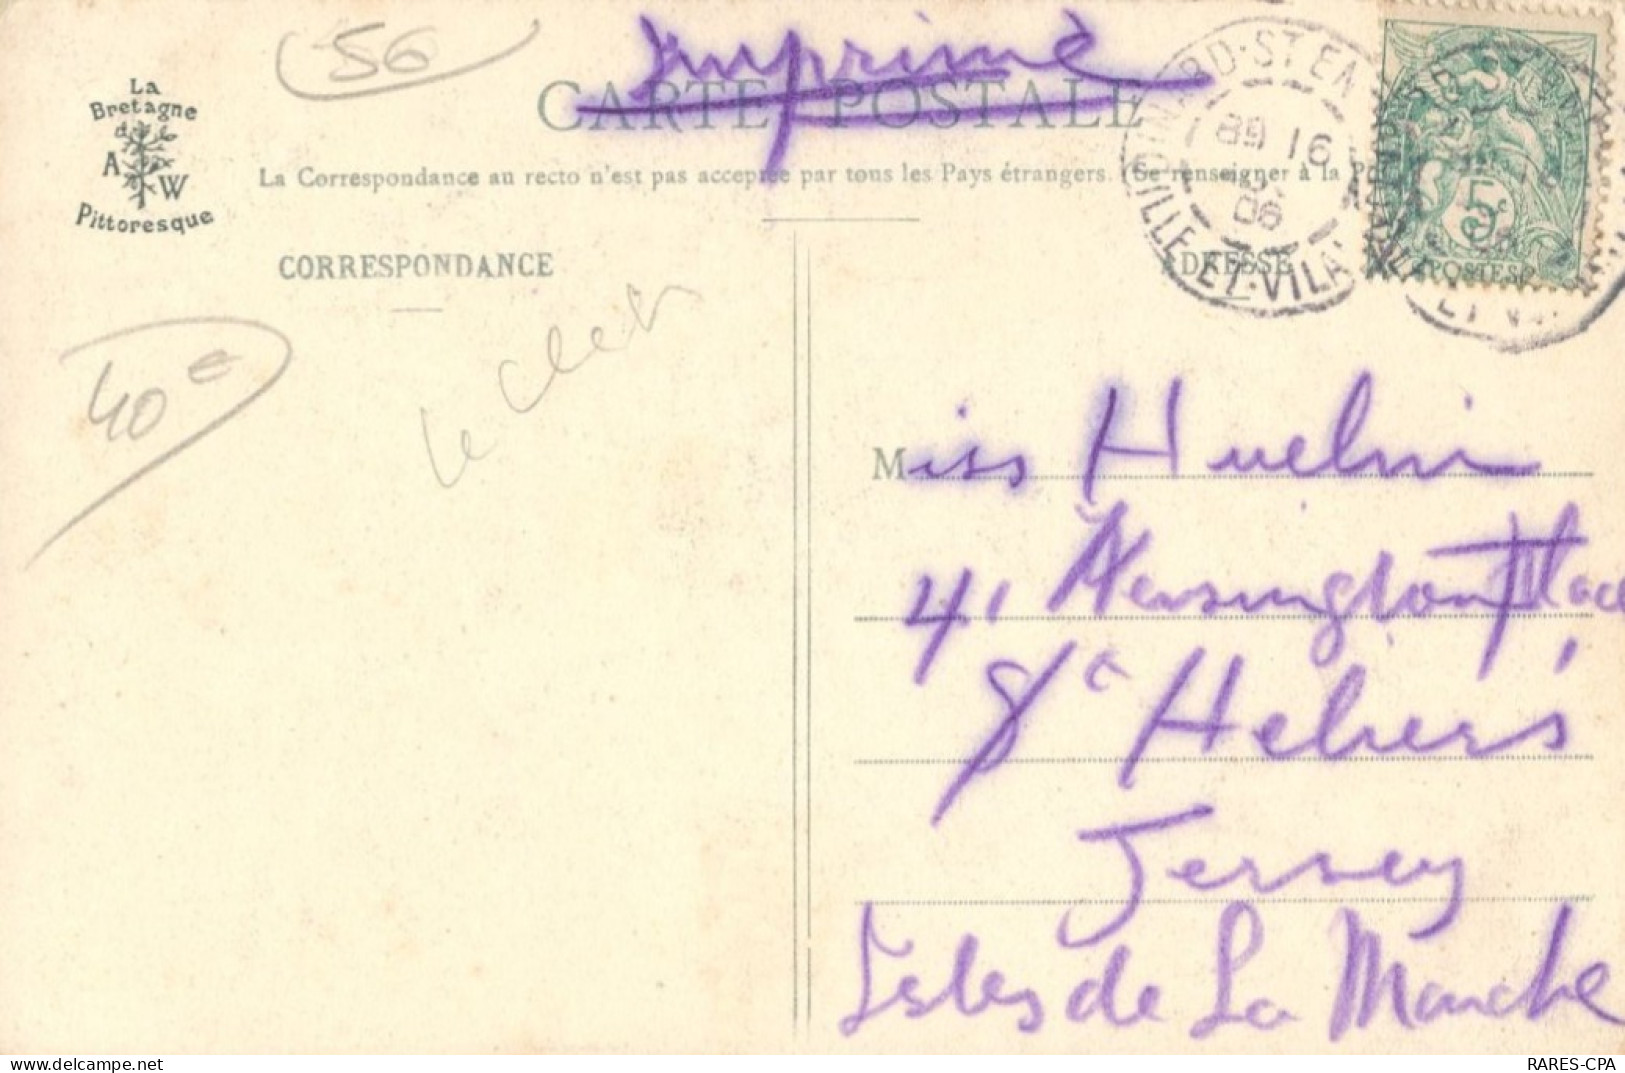 56
Imprimé
La
Bretagne
A W
Pittoresque
CARTE POSTALE
La Correspondance au recto n'est pas acceptée par tous les Pays étrangers. (Se renseigner à la
CORRESPONDANCE
ADRESSE
DINARD-ST EN
16
06
ILLE-ET-VILA
5c
POSTES
40€
Le
Miss Huelin
41 Kensington Place
St Heliers
Jersey
Isles de La Manche
RARES-CPA